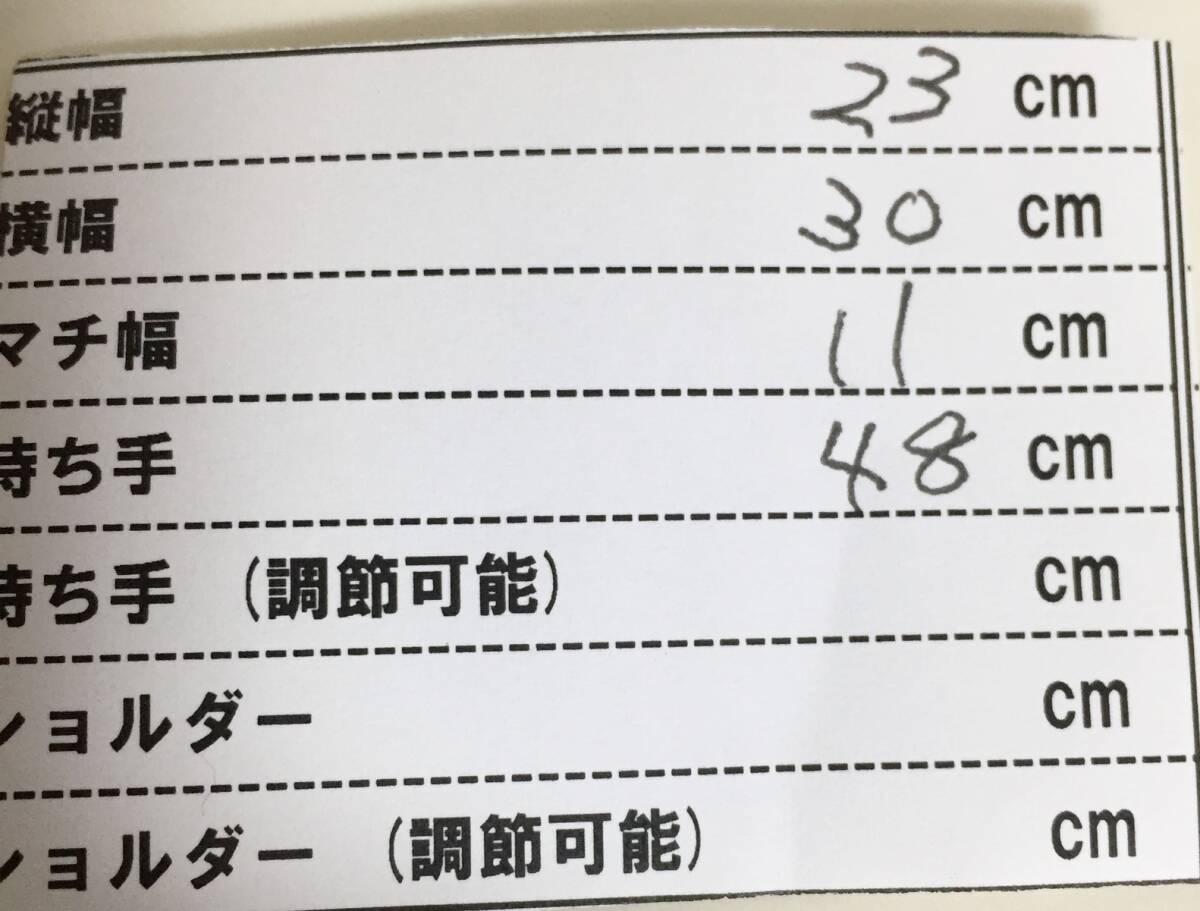 縦幅 23 cm
横幅 30 cm
マチ幅 11 cm
持ち手 48 cm
持ち手 (調節可能) cm
ショルダー cm
ショルダー (調節可能) cm